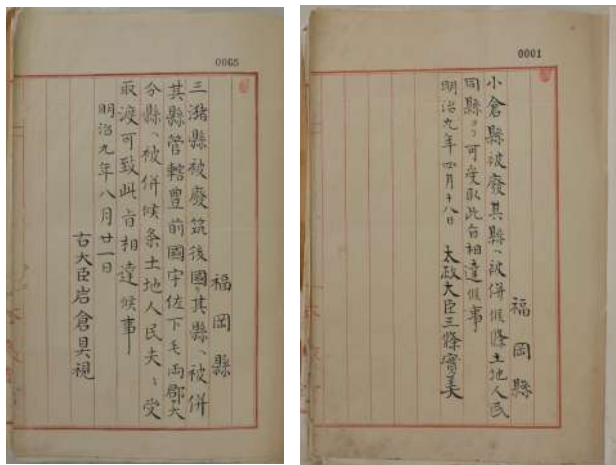 0065
福岡縣
三潴縣被廢筑後國ヲ其縣ヘ被併
其縣管轄豊前國宇佐下毛両郡大
分縣ヘ被併候条土地人民夫々受
取渡可致此旨相達候事
明治九年八月廿一日
右大臣岩倉具視
0001
福岡縣
小倉縣被廢其縣ヘ被併候條土地人民
同縣ヨリ可受取此旨相達候事
明治九年四月十八日 太政大臣三條實美